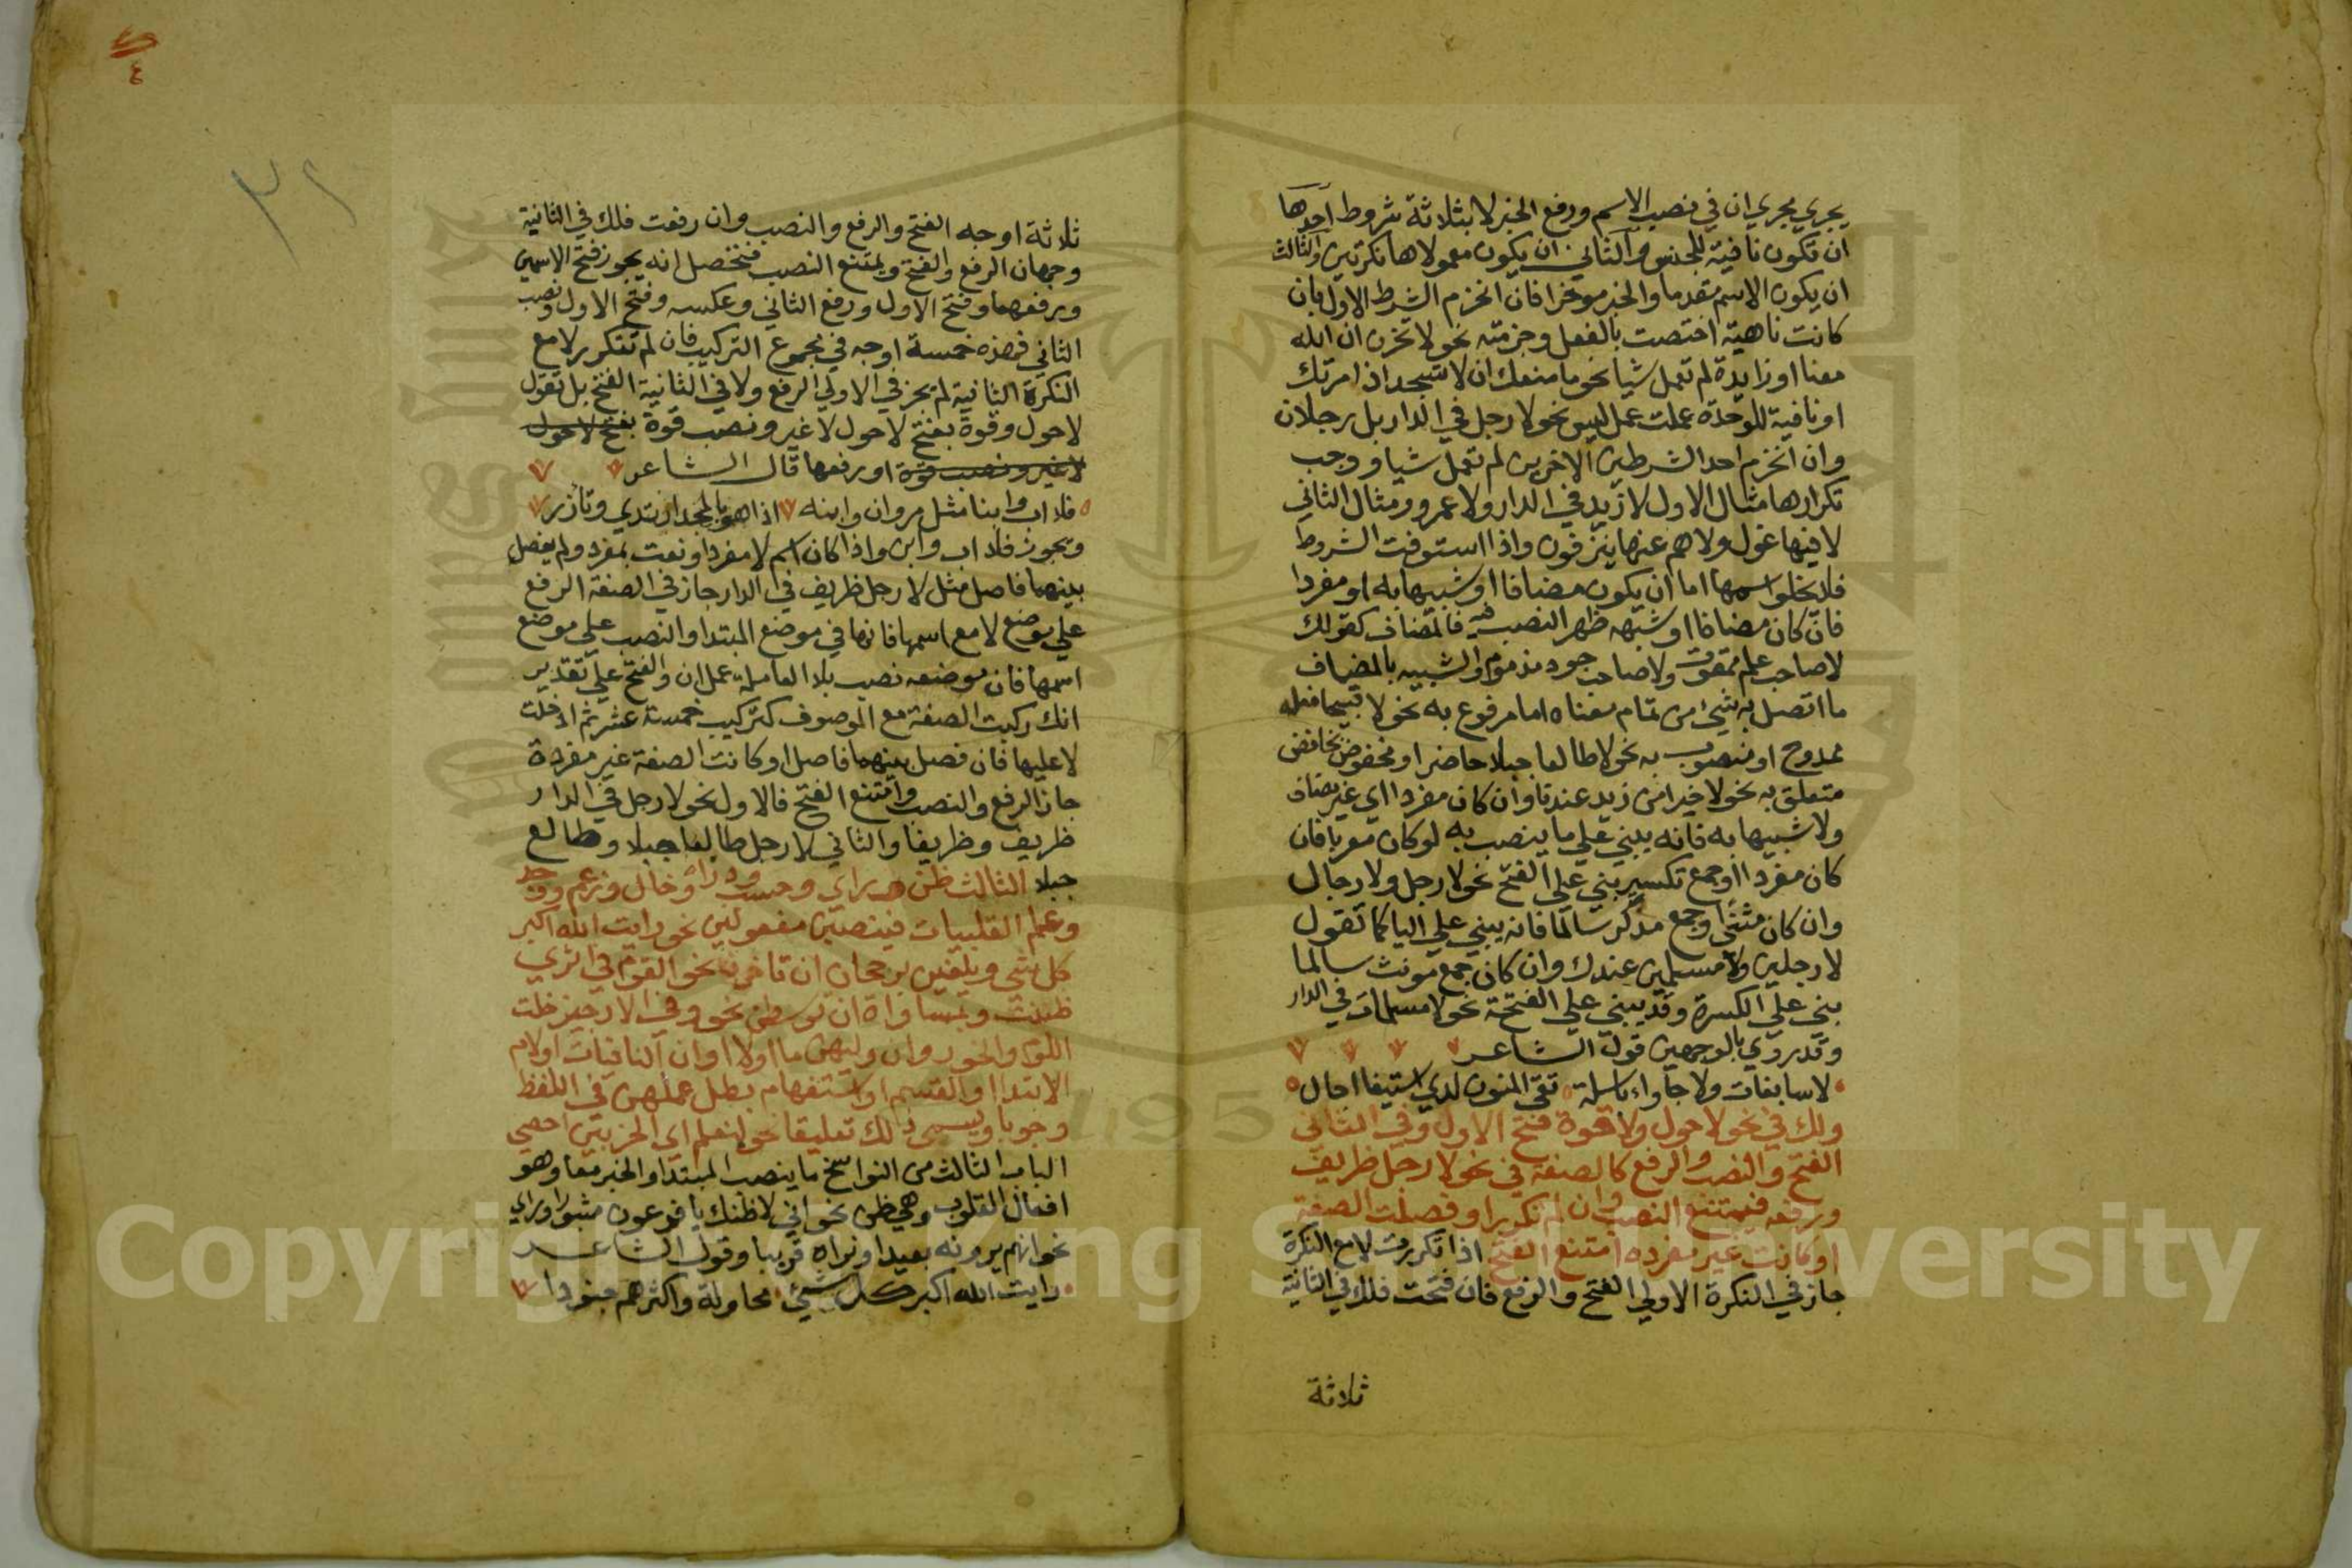 يجري مجري ان في نصب الاسم ورفع الخبر لا بثلاثة شروط احدها
ان تكون نافية للجنس والثاني ان يكون معمولاها نكرتين والثالث
ان يكون الاسم مقدما والخبر موخرا فان انخرم الشرط الاول بان
كانت ناهية اختصت بالفعل وجزمته نحو لا تحزن ان الله
معنا او زايدة لم تعمل شيا نحو ما منعك ان لا تسجد اذ امرتك
او نافية للوحدة عملت عمل ليس نحو لا رجل في الدار بل رجلان
وان انخرم احد الشرطين الاخرين لم تعمل شيا ووجب
تكرارها مثال الاول لا زيد في الدار ولا عمرو ومثال الثاني
لا فيها غول ولا هم عنها ينزفون واذا استوفت الشروط
فلا يخلو اسمها اما ان يكون مضافا او شبيها به او مفردا
فان كان مضافا او شبهه ظهر النصب فيه فالمضاف كقولك
لا صاحب علم ممقوت ولا صاحب جود مذموم والشبيه بالمضاف
ما اتصل به شيء من تمام معناه اما مرفوع به نحو لا قبيحا فعله
ممدوح او منصوب به نحو لا طالعا جبلا حاضرا او مخفوض بخافض
متعلق به نحو لا خيرا من زيد عندنا وان كان مفردا اي غير مضاف
ولا شبيها به فانه يبني علي ما ينصب به لو كان معربا فان
كان مفردا او جمع تكسير بني علي الفتح نحو لا رجل ولا رجال
وان كان مثني او جمع مذكر سالما فانه يبني علي اليا كما تقول
لا رجلين ولا مسلمين عندك وان كان جمع مونث سالما
بني علي الكسرة وقد يبني علي الفتحة نحو لا مسلمات في الدار
وقد روي بالوجهين قول الشاعر
لا سابغات ولا جاواء باسلة تقي المنون لدي استيفا اجال
ولك في نحو لا حول ولا قوة فتح الاول وفي الثاني
الفتح والنصب والرفع كالصفة في نحو لا رجل ظريف
ورفعه فيمتنع النصب وان لم تكرر لا او فصلت الصفة
او كانت غير مفرده امتنع الفتح اذا تكررت لا مع النكرة
جاز في النكرة الاولي الفتح والرفع فان فتحت فلك في الثانية
ثلاثة
٣٢
ثلاثة اوجه الفتح والرفع والنصب وان رفعت فلك في الثانية
وجهان الرفع والفتح ويمتنع النصب فتحصل انه يجوز فتح الاسمين
ورفعهما وفتح الاول ورفع الثاني وعكسه وفتح الاول ونصب
الثاني فهذه خمسة اوجه في مجموع التركيب فان لم تتكرر لا مع
النكرة الثانية لم يجز في الاولي الرفع ولا في الثانية الفتح بل تقول
لا حول وقوة بفتح لا حول لا غير ونصب قوة بفتح لا حول
لا غير ونصب قوة او رفعها قال الشاعر
فلا اب وابنا مثل مروان وابنه اذا هو بالمجد ارتدي وتازر
ويجوز فلا اب وابن واذا كان اسم لا مفردا ونعت بمفرد ولم يفصل
بينهما فاصل مثل لا رجل ظريف في الدار جاز في الصفة الرفع
علي موضع لا مع اسمها فانها في موضع المبتدا والنصب علي موضع
اسمها فان موضعه نصب بلا العاملة عمل ان والفتح علي تقدير
انك ركبت الصفة مع الموصوف كتركيب خمسة عشر ثم ادخلت
لا عليها فان فصل بينهما فاصل او كانت الصفة غير مفردة
جاز الرفع والنصب وامتنع الفتح فالاول نحو لا رجل في الدار
ظريف وظريفا والثاني لا رجل طالعا جبلا وطالع
جبلا الثالث ظن وراي وحسب ودرا وخال وزعم ووجد
وعلم القلبيات فينصبن مفعولين نحو رايت الله اكبر
كل شي ويلغين برجحان ان تاخرن نحو القوم في اثري
ظننت وبمساواة ان توسطن نحو وفي الاراجيز خلت
اللوم والخور وان وليهن ما او لا او ان النافيات او لام
الابتدا او القسم او استفهام بطل عملهن في اللفظ
وجوبا ويسمي ذلك تعليقا نحو لنعلم اي الحزبين احصي
الباب الثالث من النواسخ ما ينصب المبتدا والخبر معا وهو
افعال القلوب وهي ظن نحو اني لاظنك يا فرعون مثبورا وراي
نحو انهم يرونه بعيدا ونراه قريبا وقول الشاعر
رايت الله اكبر كل شيء محاولة واكثرهم جنودا
Copyright © King Saud University